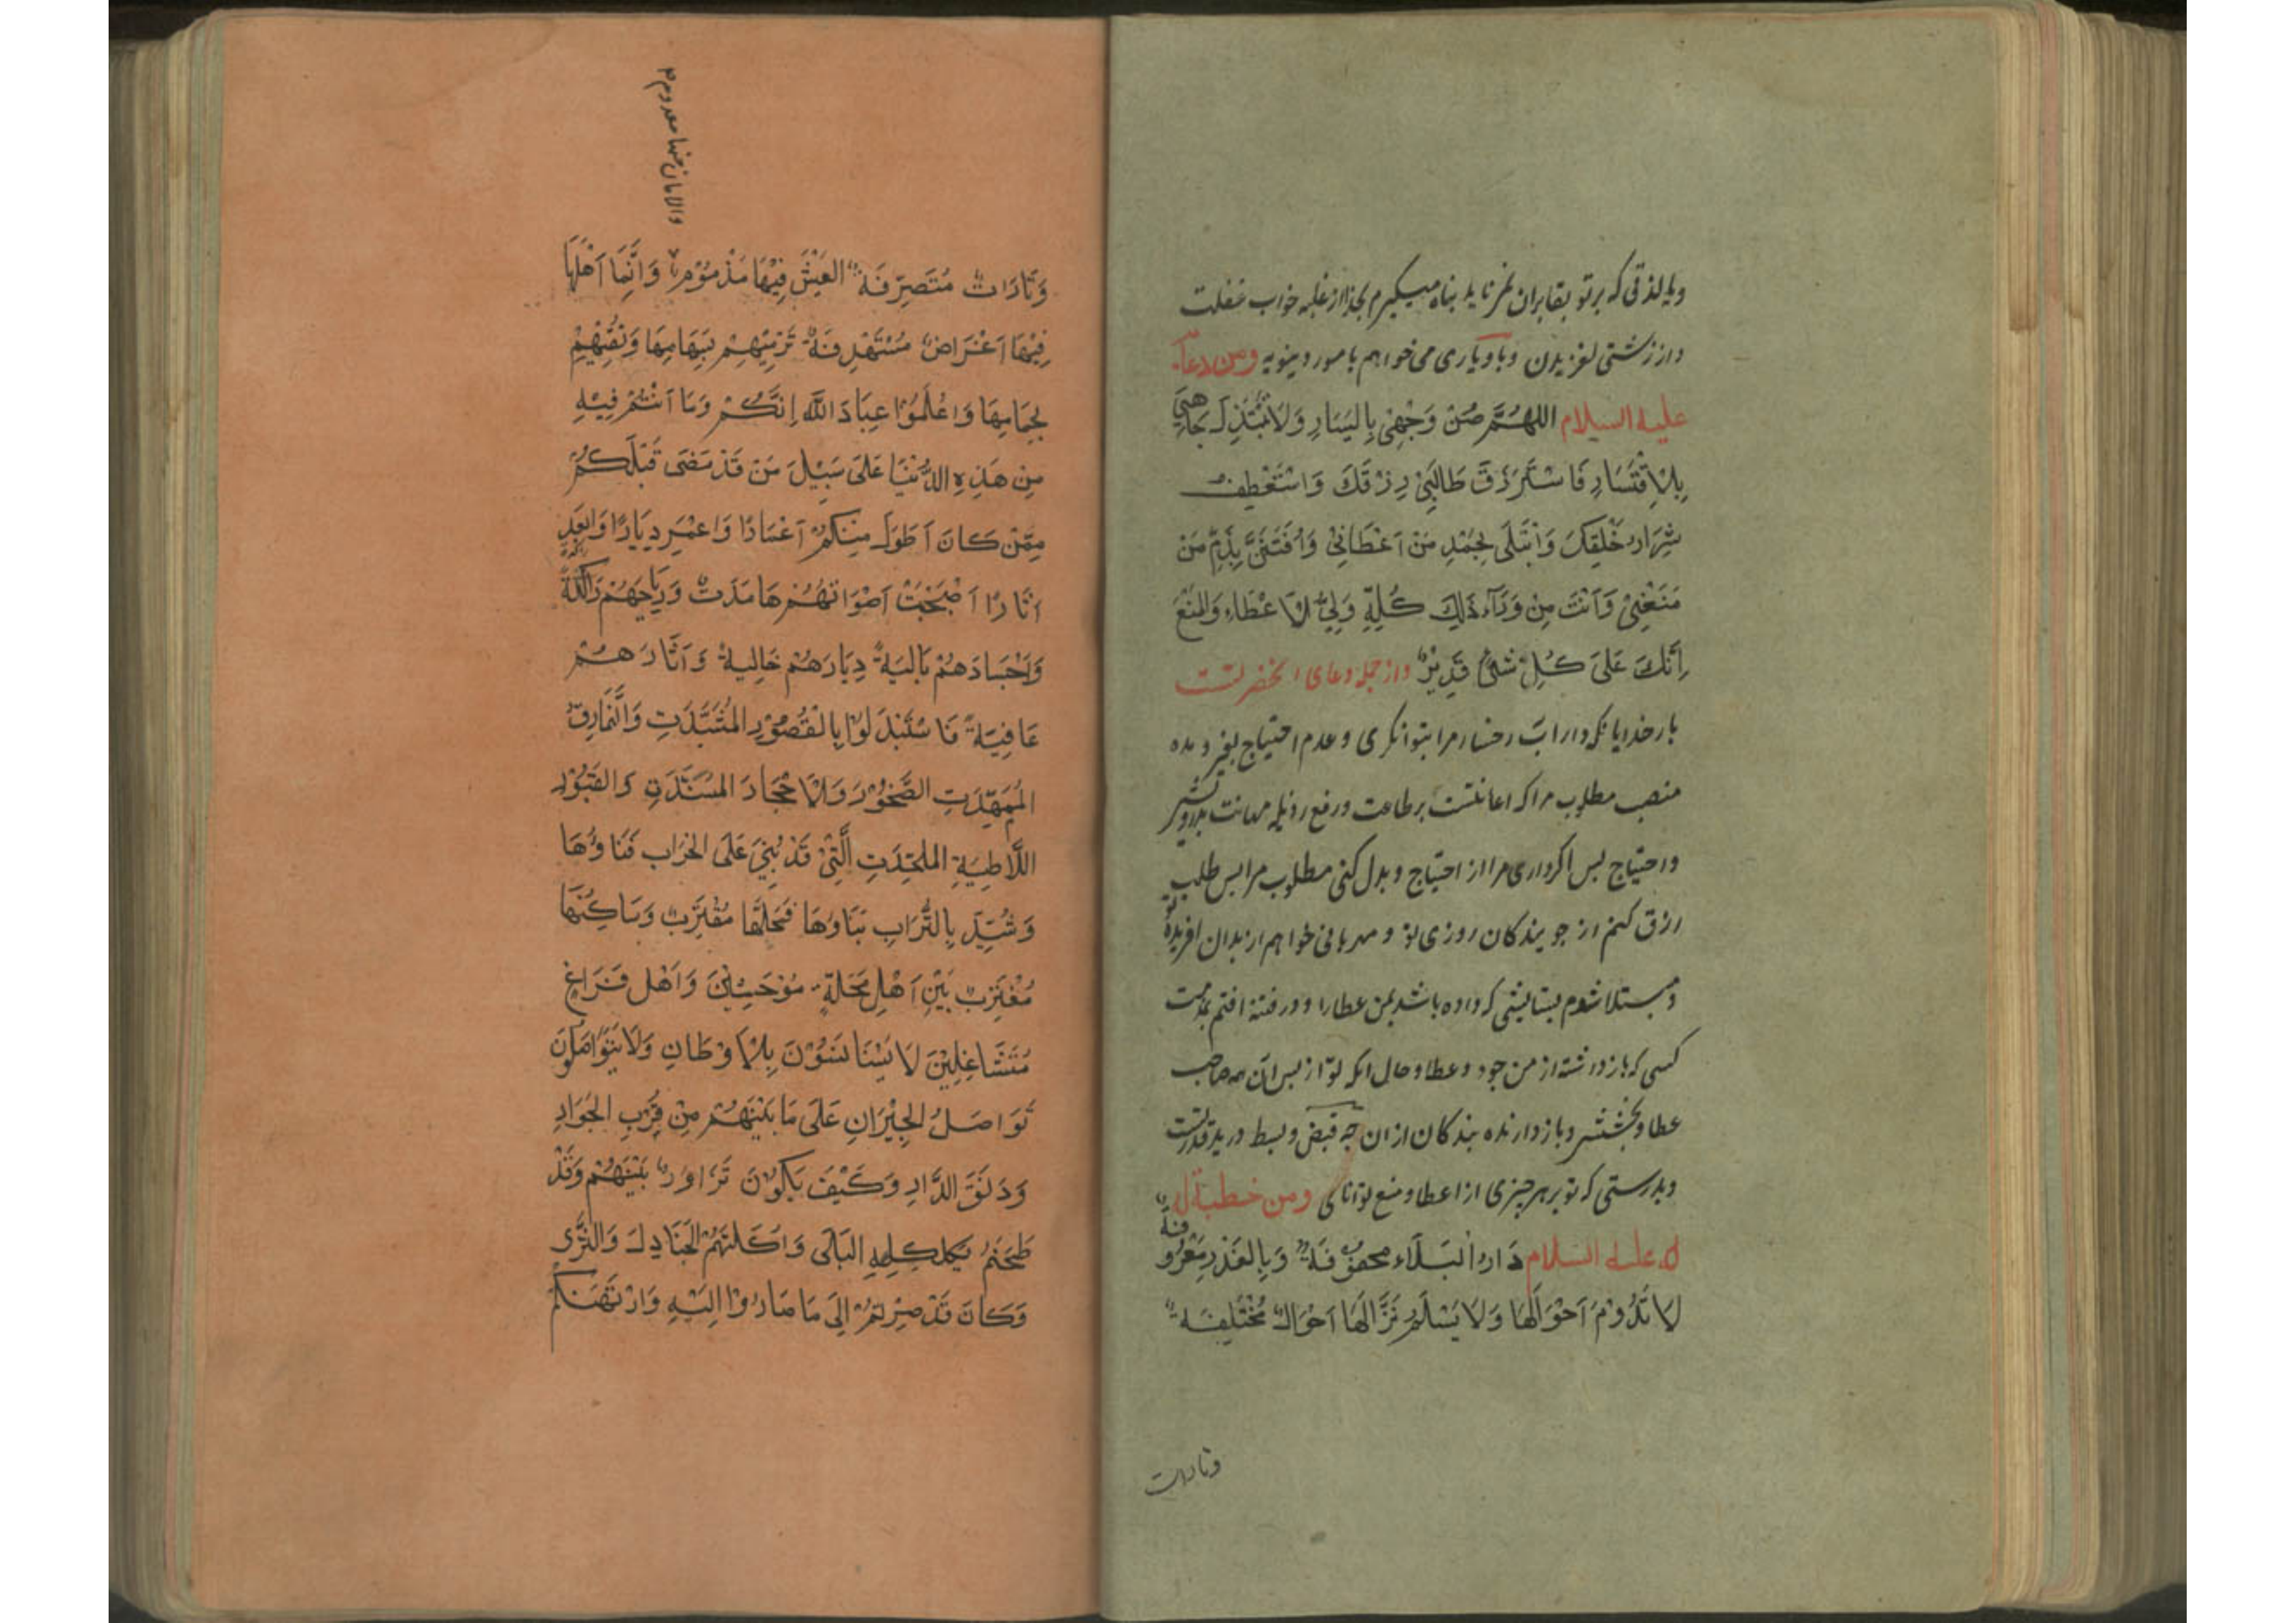 ویا لذتی که برتو بقا بران نمر ناید پناه میگیرم بخدا از غلبه خواب غفلت
و از زشتی لغزیدن و با ویاری می خواهم با مور دینویه ومن دعآء
علیه السلام اللهُمَّ صُنْ وَجْهِیْ بِالیَسَارِ وَلَاتَبْتَذِلْ جَاهِیَ
بِالْاِقْتَسَارِ فَاسْتَرْزَقَ طَالِبَیْ رِزْقَكَ وَاسْتَعْطِفُ
شِرَارِ خَلْقِكَ وَابْتَلَی بِحَمْدِ مَنْ اَعْطَانِیْ وَاُفْتَتَنَّ بِذَمِّ مَنْ
مَنَعْنِیْ وَاَنْتَ مِنْ وَرَآءِ ذٰلِكَ كُلِّهِ وَلِیُّ الْاَعْطَاءِ وَالْمَنْعَ
اِنَّكَ عَلَیَ كُلِّ شَیْءٍ قَدِیْرٌ واز جمله دعای انحضرتست
بار خدایا نکه دار اب رخسار مرا بتوانکری و عدم احتیاج بغیر و مده
منصب مطلوب مرا که اعانتست بر طاعت ورفع رذیله مهانت بدرویشی
واحتیاج بس اکر داری مرا از احتیاج و بدل کنی مطلوب مرا بس طلب
رزق کنم از جویندکان روزی تو و مهربانی خواهم از بدان افریده تو
و مبتلا شوم بستایشی که داده باشد بمن عطارا و در فتنه افتم بمذمت
کسی که باز داشته از من جود و عطا و حال انکه تو از بس ان همه صاحب
عطا و بخششی و باز دارنده بندکان ازان چه قبض و بسط در ید قدرتست
و بدرستی که تو بر هر چیزی از اعطا و منع توانای ومن خطبة ل
ه علیه السلام دَارٌ البَلَاء مَحفُوفَةٌ وَبِالغَدْرِ مَعْرُوفَةٌ
لَا تَدُوْمَ اَحْوَالُهَا وَلَا یَسْلَمُ نُزَّالُهَا اَحْوَالٌ مُخْتَلِفَةٌ
وتارات
وَتَارَاتٌ مُتَصَرِّفَةٌ العَیْشُ فِیْهَا مَذْمُوْمٌ وَاِنَّمَا اَهْلُهَا
والامان منها معدوم
فِیْهَا اَغْرَاضٌ مُسْتَهْدِفَةٌ تَرْمِیْهِمْ بِسِهَامِهَا وَتُفْنِیْهِمْ
بِحِمَامِهَا وَاعْلَمُوْا عِبَادَ اللّٰه اِنَّكُمْ وَمَا اَنْتُمْ فِیْهِ
مِنْ هَذِهِ الدُّنْیَا عَلَی سَبِیْلَ مَنْ قَدْ مَضَی قَبْلَكُمْ
مِمَّنْ كَانَ اَطَوَلَ مِنْكُمْ اَعْمَارًا وَاعْمَرِ دِیَارًا وَابْعَدِ
اٰثَارًا اَصْبَحَتْ اَصْوَاتُهُمْ هَامَدَتٌ وَرِیَاحَهُمْ رَاكِدَةٌ
وَاَجْسَادَهُمْ بَالِیَةٌ دِیَارَهُمْ خَالِیةٌ وَ اٰثَارَهُمْ
عَافِیَةٌ فَاسْتَبْدَلُوْا بِالْقُصُوْرِ المُشَیَّدَتِ وَالنَّمَارِقُ
المُمَهَّدَتِ الصُّخُوْرَ وَالْاَحْجَارَ المُسْنَدَتِ وَالقُبُوْرِ
اللَّاطِیَةِ المُلْحَدَتِ الَّتِیْ قَدْ بُنِیَ عَلَی الخَرَابِ فَنَاؤُهَا
وَشُیِّدَ بِالتُّرَابِ بِنَاؤُهَا فَمَحَلُّهَا مُقْتَرِبٌ وَسَاكِنُهَا
مُغْتَرِبٌ بَیْنَ اَهْلِ مَحَلَّةٍ مُوْحَشِیْنَ وَاَهْلِ فَرَاغٍ
مُتَشَاغِلِیْنَ لَا یَسْتَانِسُوْنَ بِالْاَوْطَانِ وَلَا یَتَوَاصَلُوْنَ
تَوَاصَلُ الجِیْرَانِ عَلَی مَا بَیْنَهُمْ مِنْ قُرْبِ الجَوَارِ
وَدَنُوِّ الدَّارِ وَكَیْفَ یَكُوْنَ تَزَاوُرٌ بَیْنَهُمْ وَقَدْ
طَحَنَهُمْ بِكَلْكَلِهِ البَلَی وَاَكَلَتْهُمُ الجَنَادِلَ وَالثَّرَی
وَكَانَ قَدْ صِرْتُمْ اِلَی مَا صَارُوْا اِلَیْهِ وَارْتَهَنَكُمْ